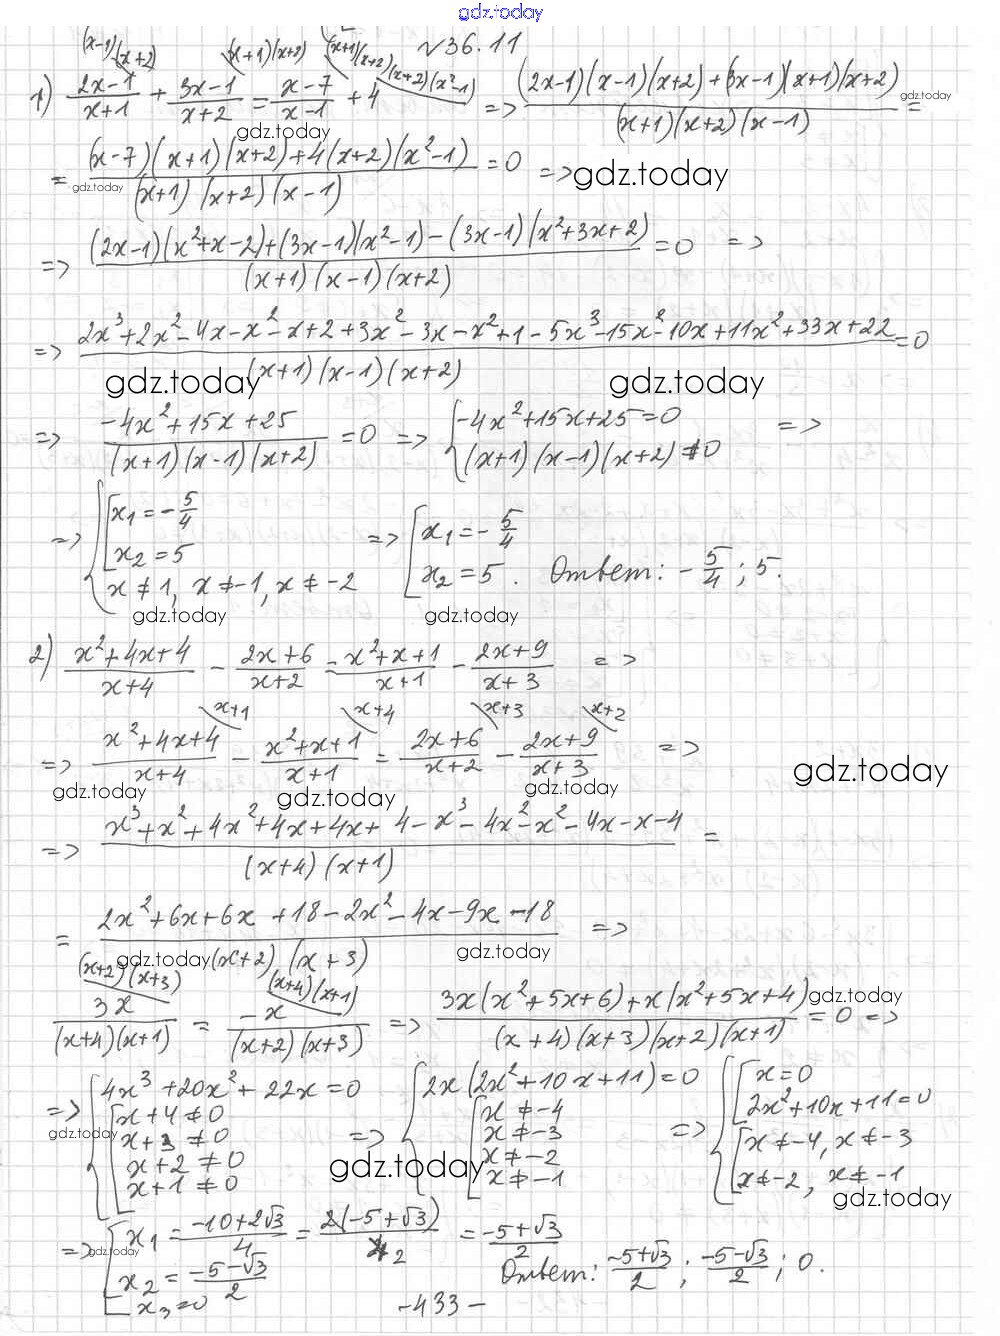 gdz.today
№36.11
(x-1)(x+2) (x+1)(x+2) (x+1)(x+2) (x+2)(x²-1)
1) (2x-1)/(x+1) + (3x-1)/(x+2) = (x-7)/(x-1) + 4 => ((2x-1)(x-1)(x+2)+(3x-1)(x+1)(x+2))/((x+1)(x+2)(x-1)) =
gdz.today gdz.today
= ((x-7)(x+1)(x+2)+4(x+2)(x²-1))/((x+1)(x+2)(x-1)) = 0 =>
gdz.today gdz.today
=> ((2x-1)(x²+x-2)+(3x-1)(x²-1)-(3x-1)(x²+3x+2))/((x+1)(x-1)(x+2)) = 0 =>
=> (2x³+2x²-4x-x²-x+2+3x²-3x-x²+1-5x³-15x²-10x+11x²+33x+22)/((x+1)(x-1)(x+2)) = 0
gdz.today gdz.today
=> (-4x²+15x+25)/((x+1)(x-1)(x+2)) = 0 => { -4x²+15x+25=0
(x+1)(x-1)(x+2)≠0 =>
=> { [ x₁=-5/4
x₂=5
x≠1, x≠-1, x≠-2
=> [ x₁=-5/4
x₂=5. Ответ: -5/4; 5.
gdz.today gdz.today
2) (x²+4x+4)/(x+4) - (2x+6)/(x+2) = (x²+x+1)/(x+1) - (2x+9)/(x+3) =>
x+1 x+4 x+3 x+2
=> (x²+4x+4)/(x+4) - (x²+x+1)/(x+1) = (2x+6)/(x+2) - (2x+9)/(x+3) =>
gdz.today gdz.today gdz.today gdz.today
=> (x³+x²+4x²+4x+4x+4-x³-4x²-x²-4x-x-4)/((x+4)(x+1)) =
= (2x²+6x+6x+18-2x²-4x-9x-18)/((x+2)(x+3)) =>
gdz.today gdz.today
(x+2)(x+3) (x+4)(x+1)
3x/((x+4)(x+1)) = -x/((x+2)(x+3)) => (3x(x²+5x+6)+x(x²+5x+4))/((x+4)(x+3)(x+2)(x+1)) = 0 =>
gdz.today
=> { 4x³+20x²+22x=0
[ x+4≠0
x+3≠0
x+2≠0
x+1≠0
=> { 2x(2x²+10x+11)=0
[ x≠-4
x≠-3
x≠-2
x≠-1
=> { [ x=0
2x²+10x+11=0
[ x≠-4, x≠-3
x≠-2, x≠-1
gdz.today gdz.today gdz.today
=> [ x₁ = (-10+2√3)/4 = 2(-5+√3)/42 = (-5+√3)/2
x₂ = (-5-√3)/2
x₃=0
gdz.today
Ответ: (-5+√3)/2; (-5-√3)/2; 0.
-433-